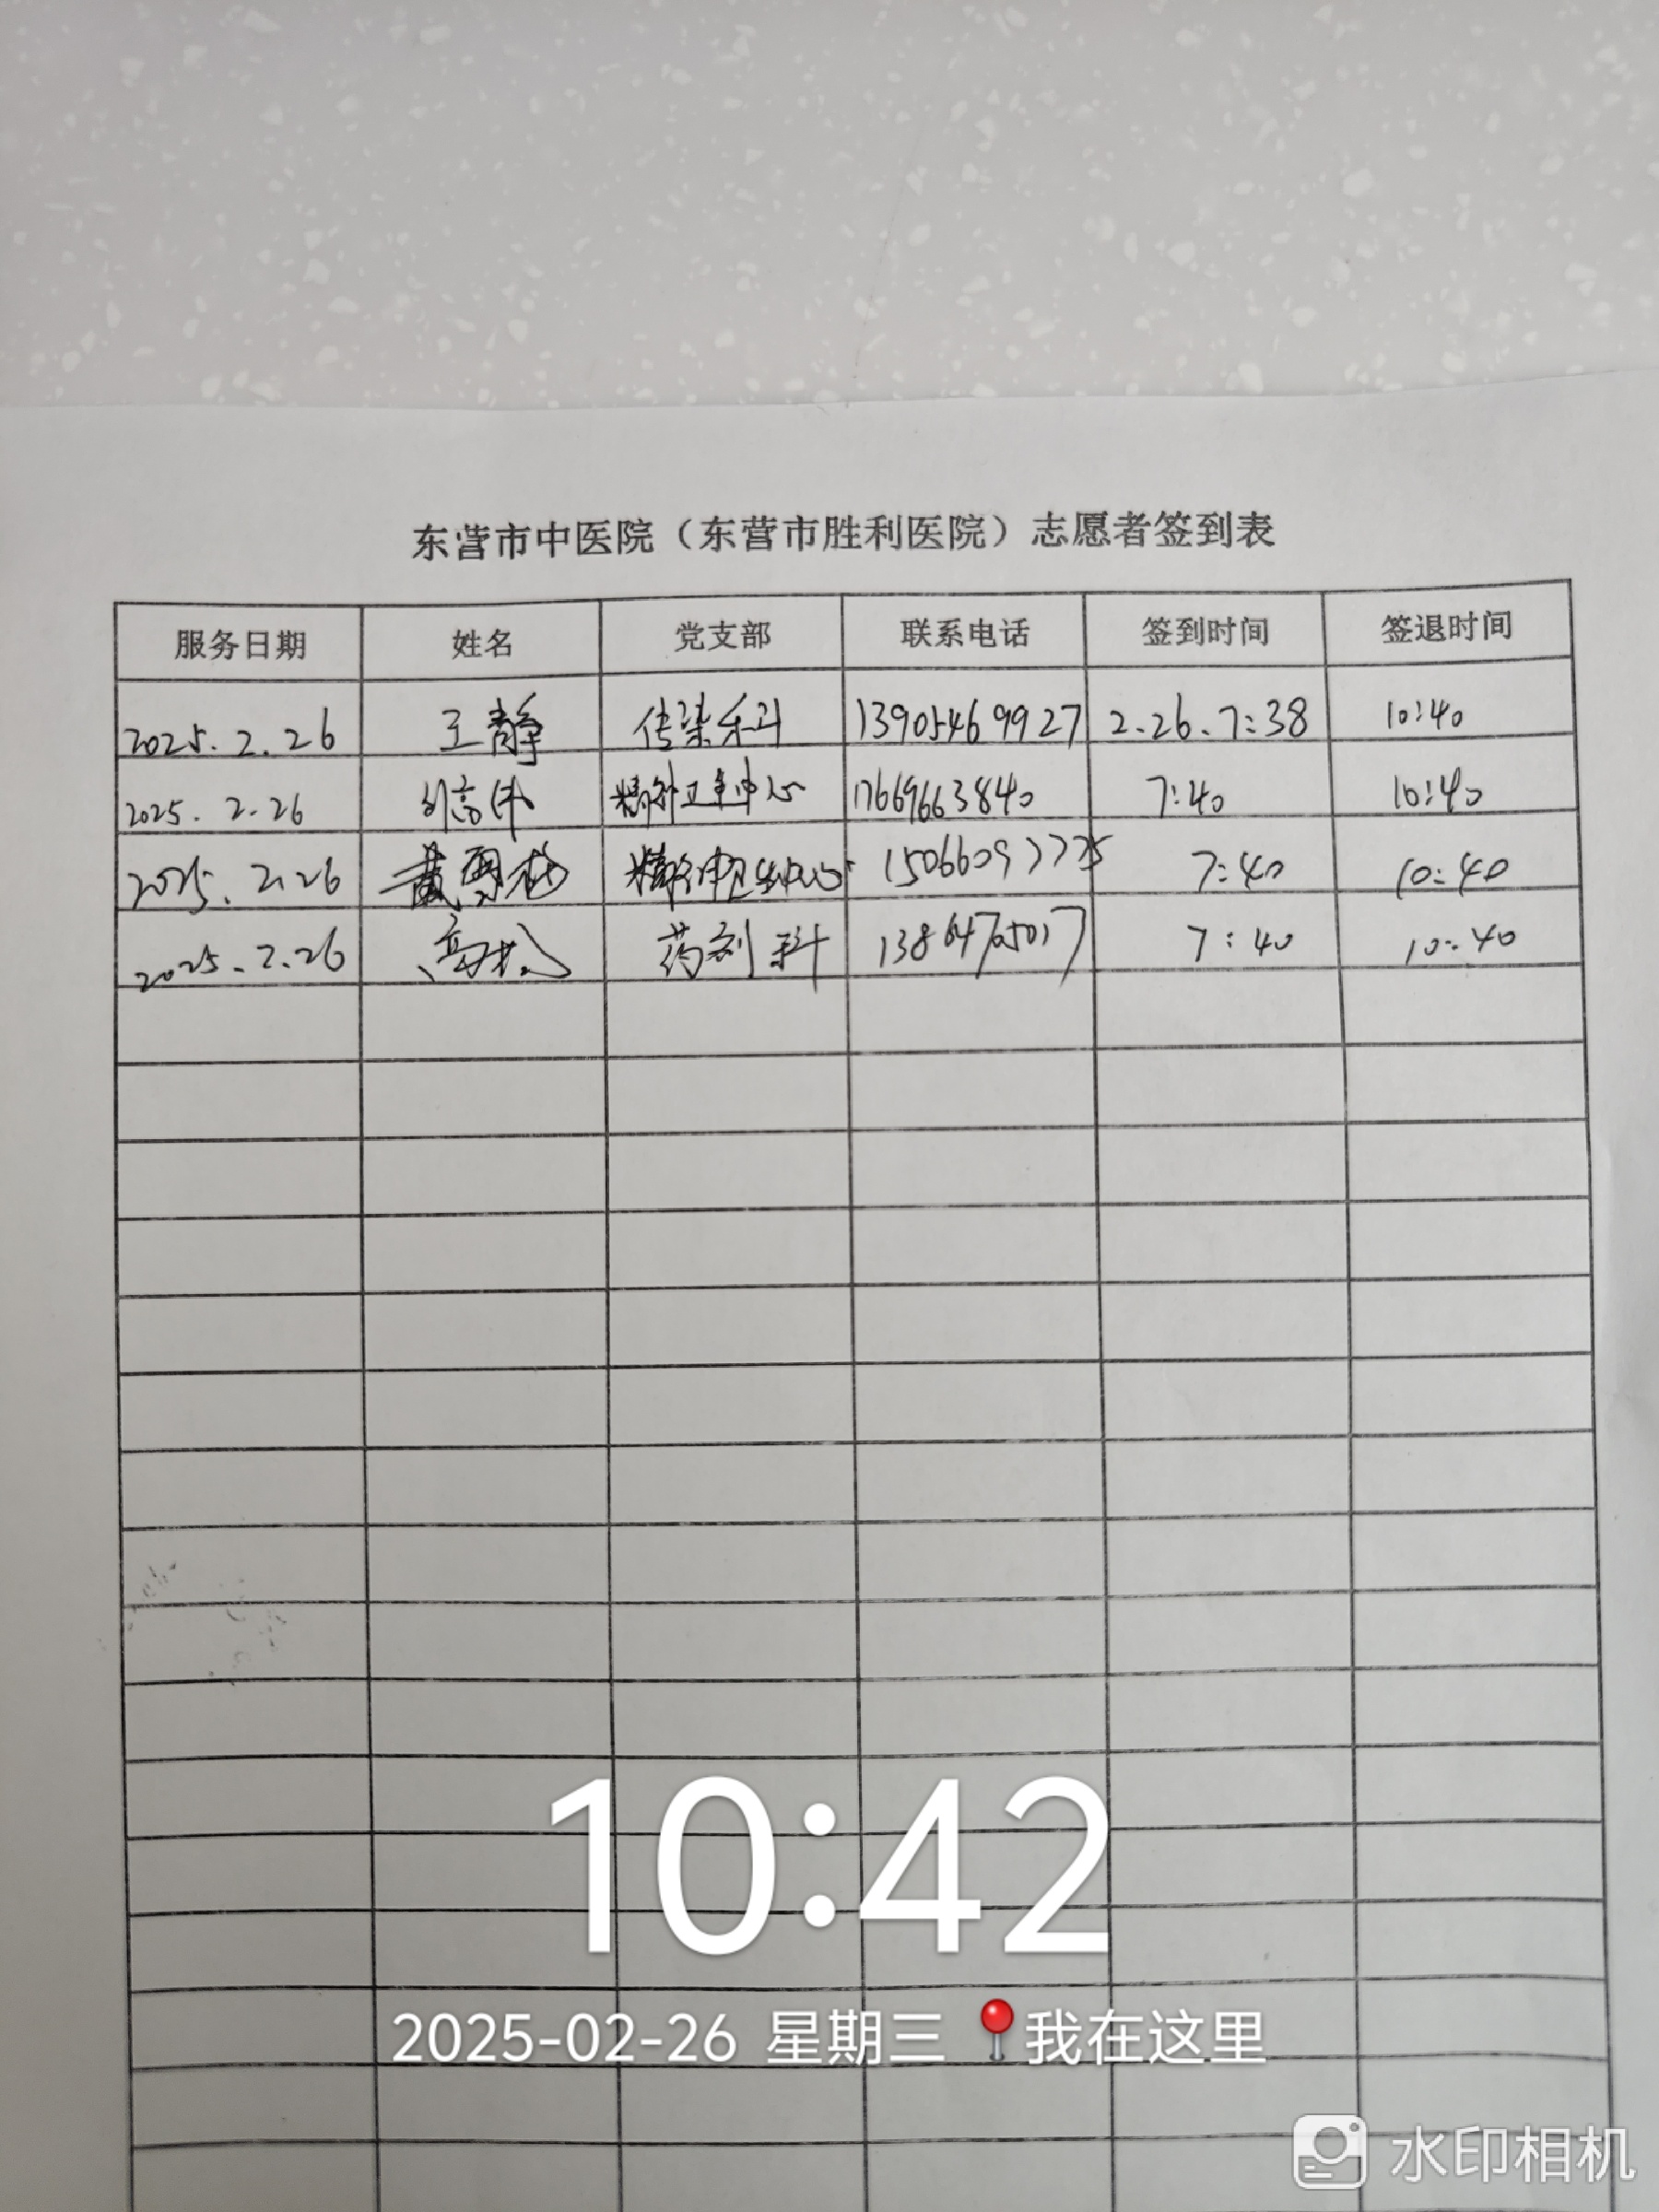 东营市中医院（东营市胜利医院）志愿者签到表
服务日期 姓名 党支部 联系电话 签到时间 签退时间
2025.2.26 王静 传染科 13905469927 2.26.7:38 10:40
2025.2.26 精神卫生中心 17669663840 7:40 10:40
2025.2.26 精神卫生中心 7:40 10:40
2025.2.26 高松 药剂科 7:40 10:40
10:42
2025-02-26 星期三 我在这里
水印相机